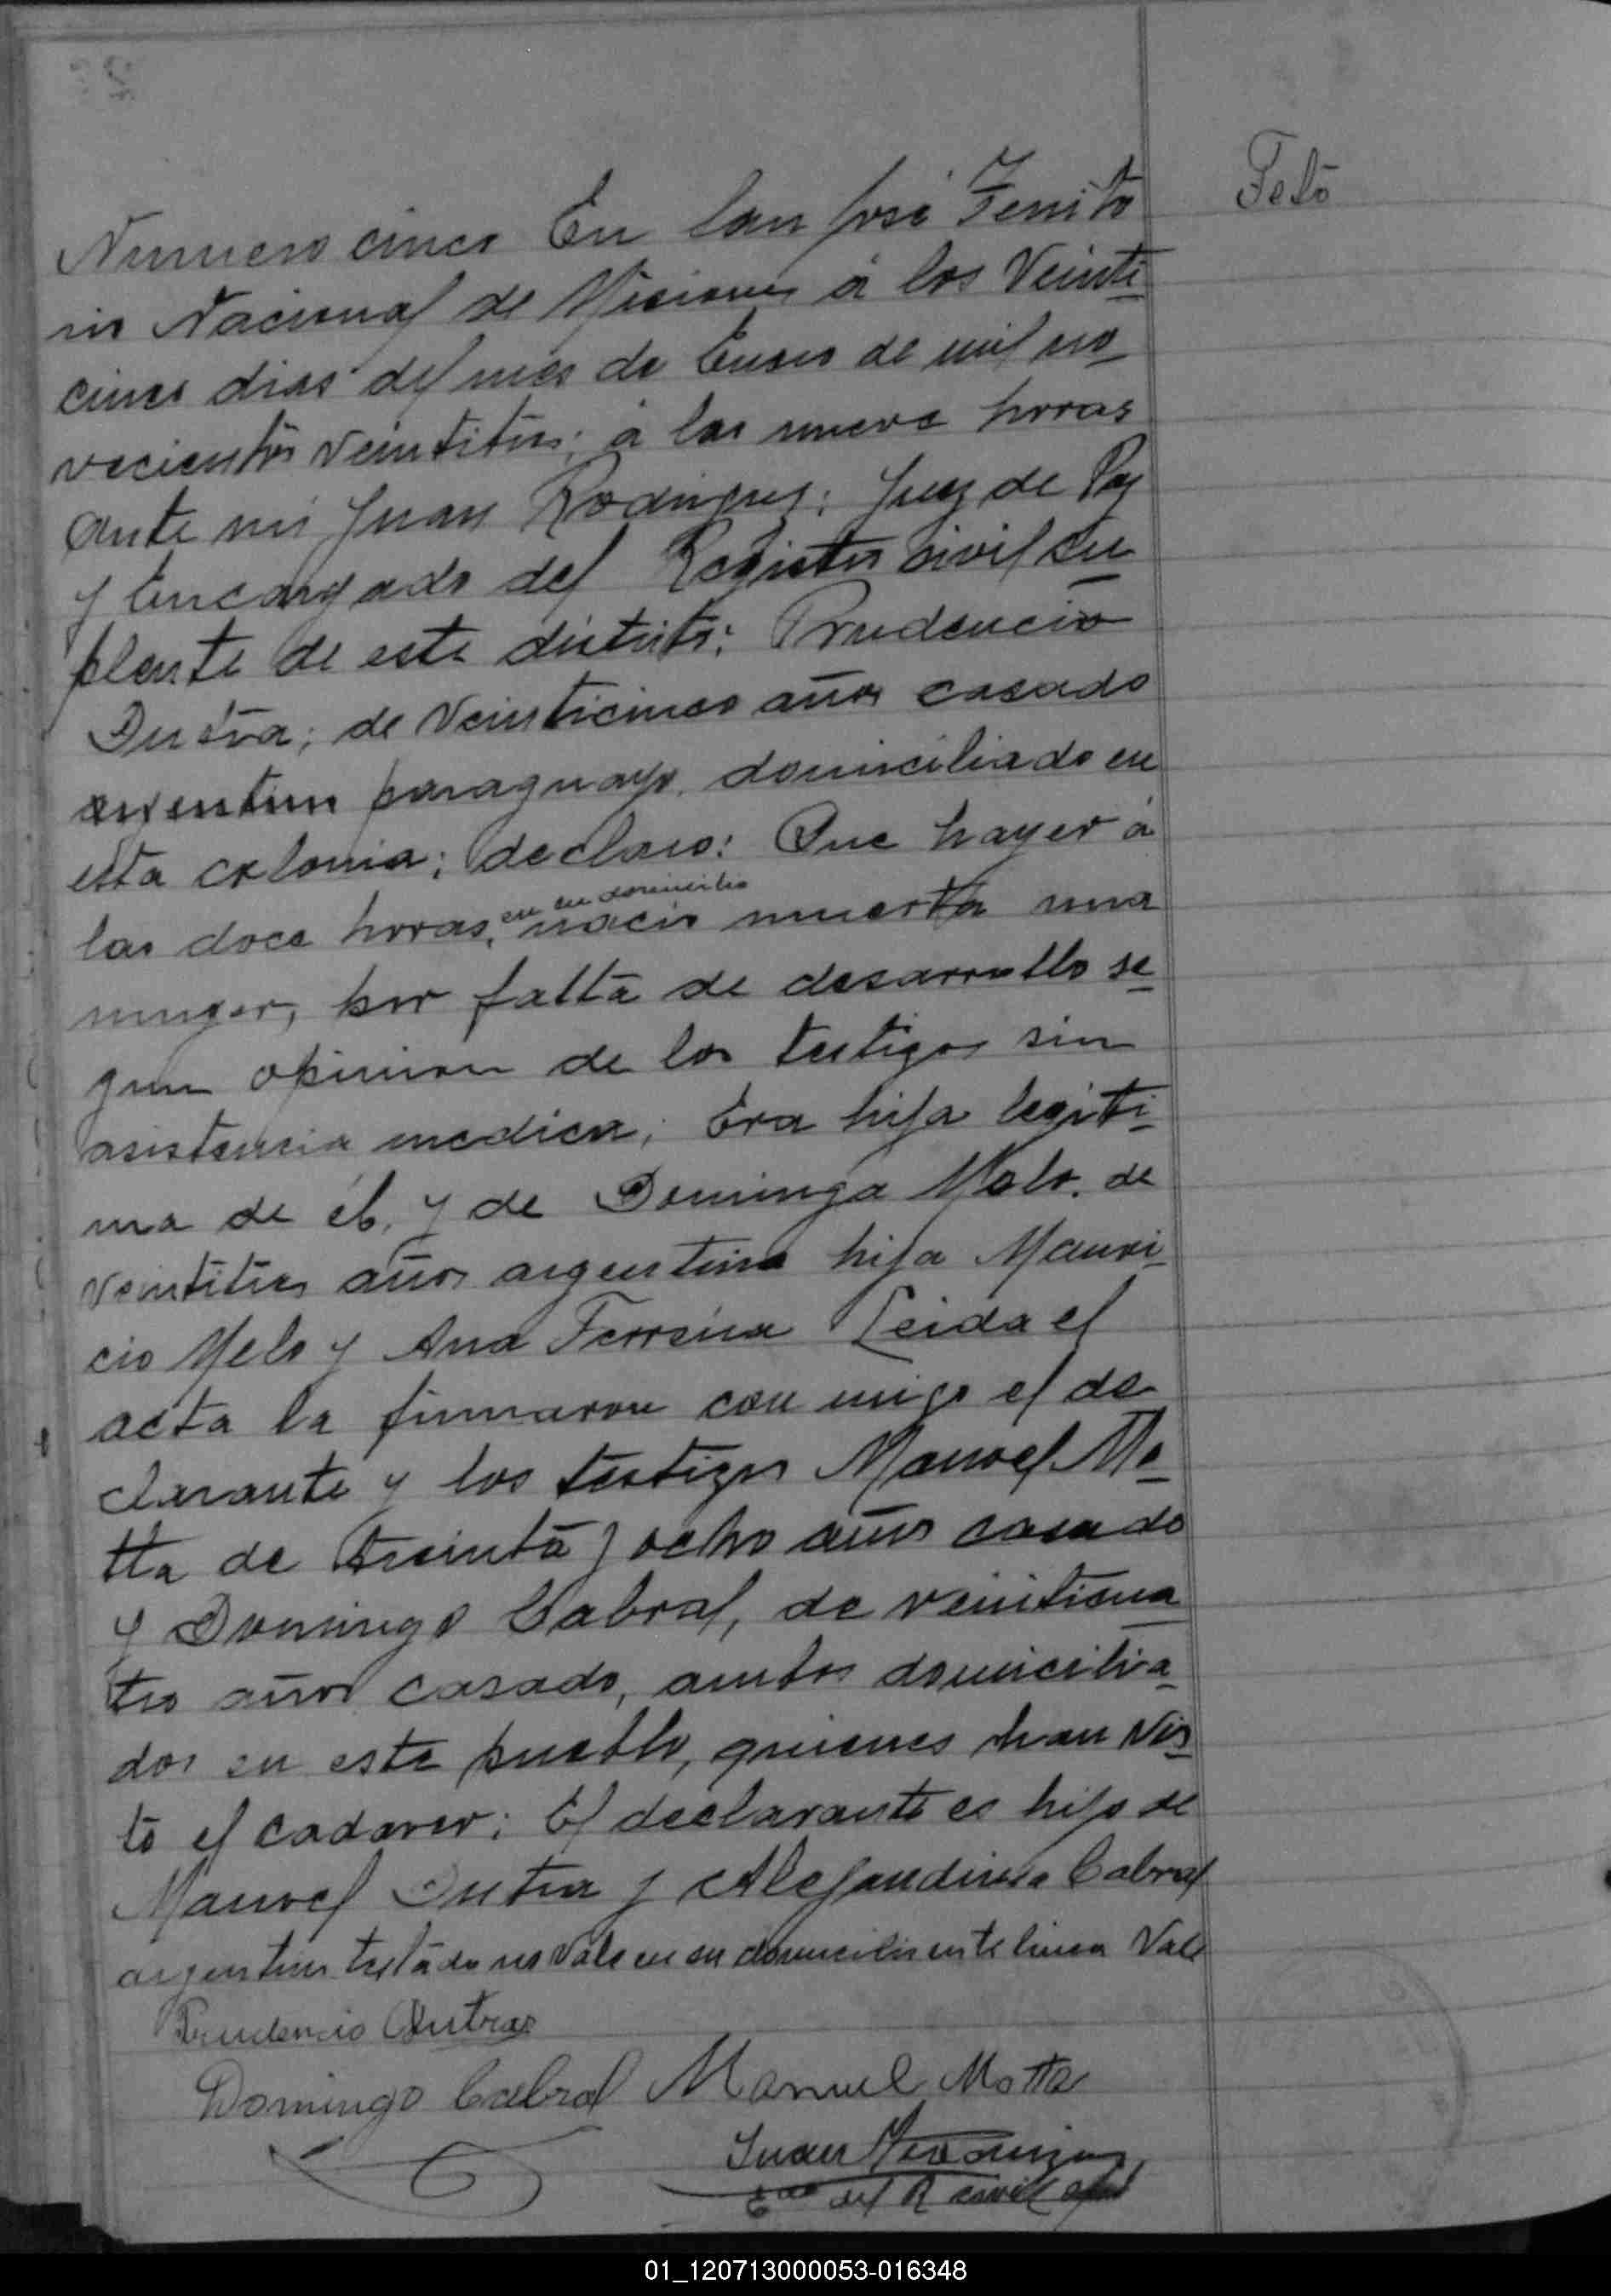 Feto
Numero cinco En San José Territo
rio Nacional de Misiones á los Veinti
cinco dias del mes de Enero de mil no
vecientos veintitres; á las nueve horas
ante mi Juan Rodriguez; Juez de Paz
y Encargado del Registro civil su
plente de este distrito; Prudencio
Dutra; de Veinticinco años casado
argentino paraguayo, domiciliado en
esta colonia; declaro: Que hayer á
las doce horas, en su domicilio nacio muerta una
muger, por falta de desarrollo se
gun opinion de los testigos sin
asistencia medica; Era hija legiti
ma de él, y de Dominga Melo, de
veintitres años argentina hija Mauri
cio Melo y Ana Ferreira Leida el
acta la firmaron con migo el de
clarante y los testigos Manoel Mo
tta de treinta y ocho años casado
y Domingo Cabral, de veinticua
tro años casado, ambos domicilia
dos en este pueblo, quienes han vis
to el cadaver; El declarante es hijo de
Manoel Dutra y Alejandrina Cabral
argentino testado no vale en su domicilio entre linea Vale
Prudencio Dutra
Domingo Cabral Manuel Motta
Juan Rodriguez
del R civil
01_120713000053-016348